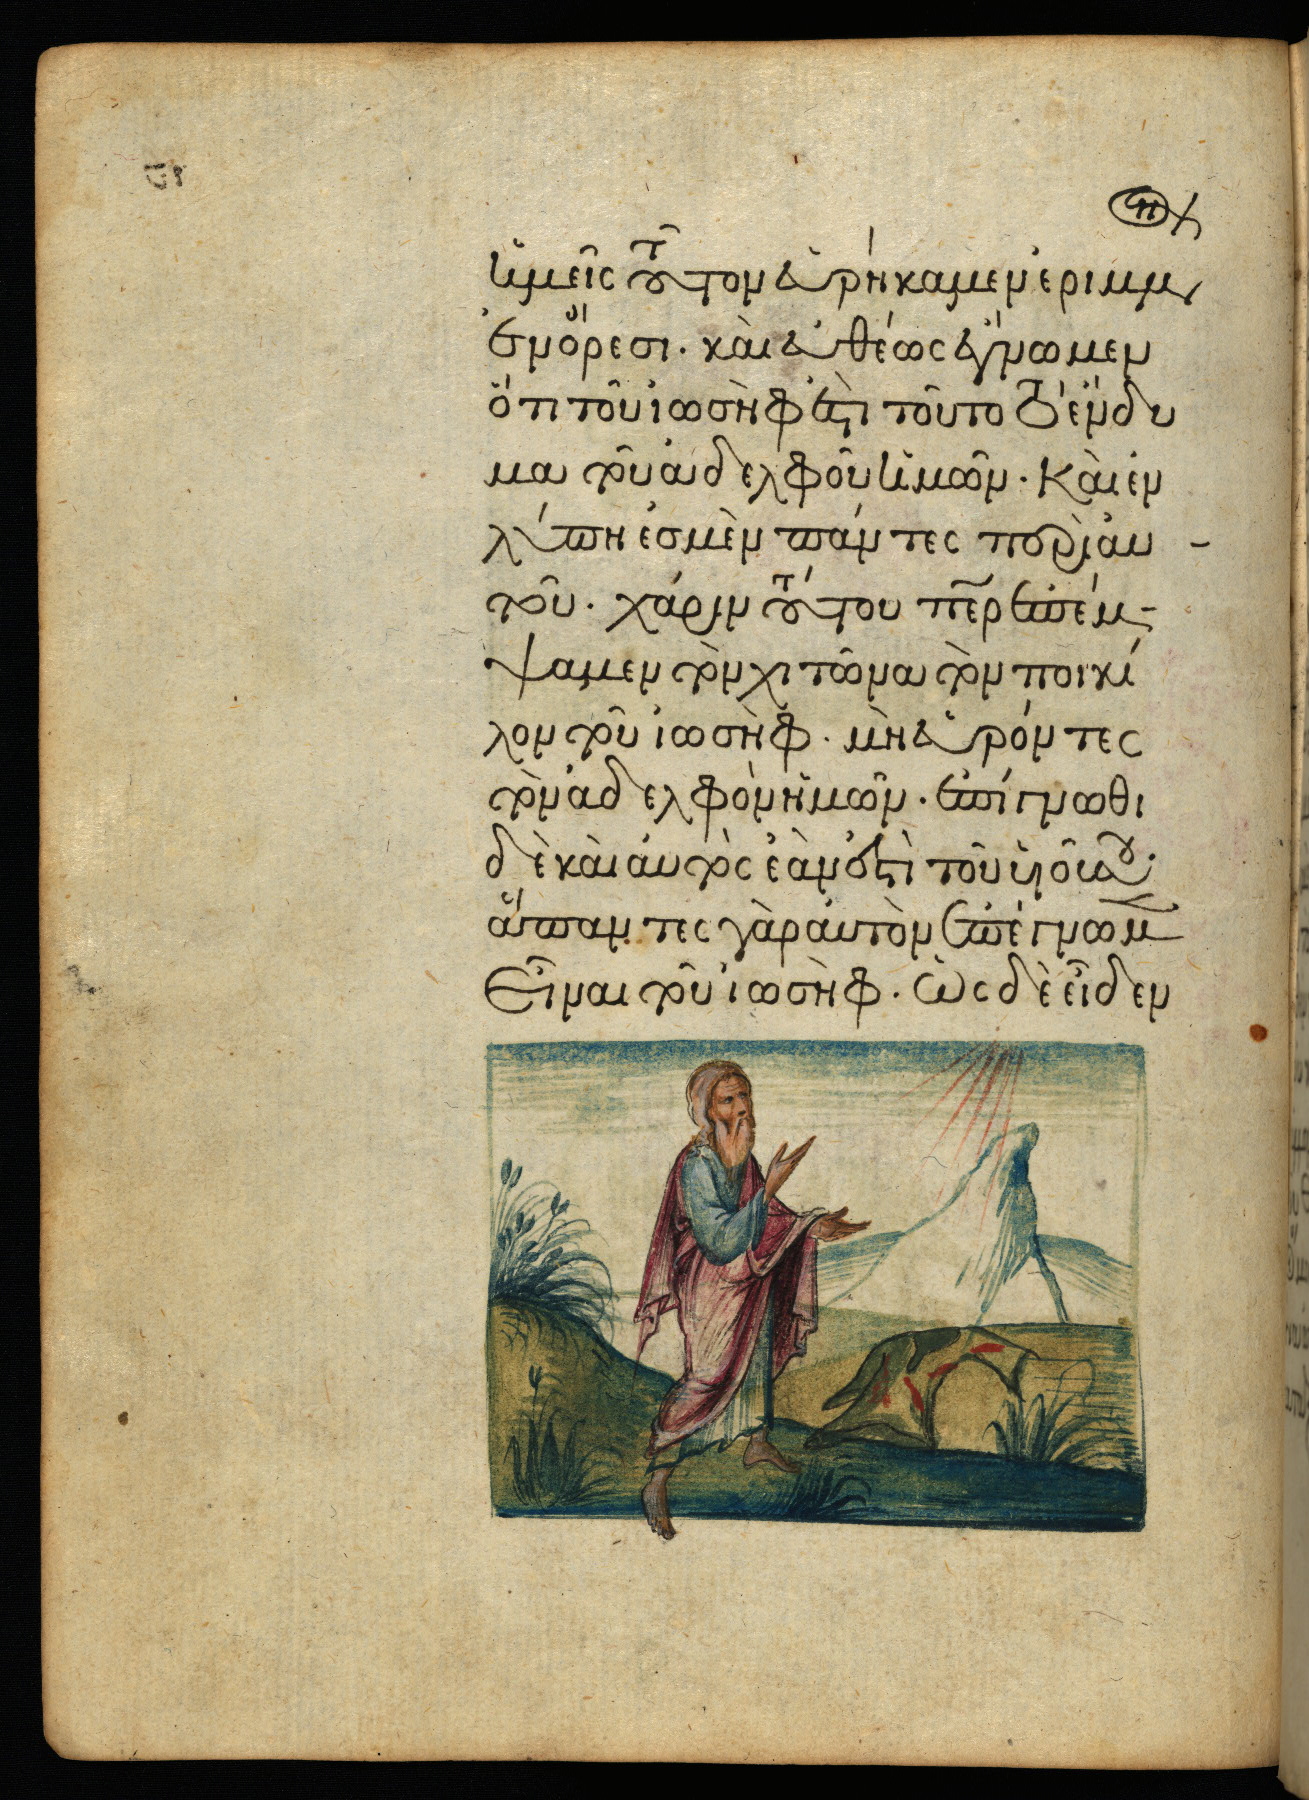 ἡμεῖς τοῦτον εὑρήκαμεν ἐριμμ
ἐν ὄρεσι. καὶ εὐθέως ἔγνωμεν
ὅτι τοῦ ἰωσὴφ ἐστὶ τοῦτο τὸ ἔνδυ
μα τοῦ ἀδελφοῦ ἡμῶν. Καὶ ἐν
λύπη ἐσμὲν πάντες περὶ αυ
τοῦ. χάριν τούτου περ ἐπέμ-
ψαμεν τὸν χιτῶνα τὸν ποικί
λον τοῦ ἰωσὴφ. μὴ εὑρόντες
τὸν ἀδελφὸν ἡμῶν. ἐπίγνωθι
δὲ καὶ αὐτὸς ἐὰν ἐστὶ τοῦ υἱοῦ σου.
ἅπαντες γὰρ αὐτὸν ἐπέγνωμ
Εἶναι τοῦ ἰωσὴφ. Ὡς δὲ εἶδεν